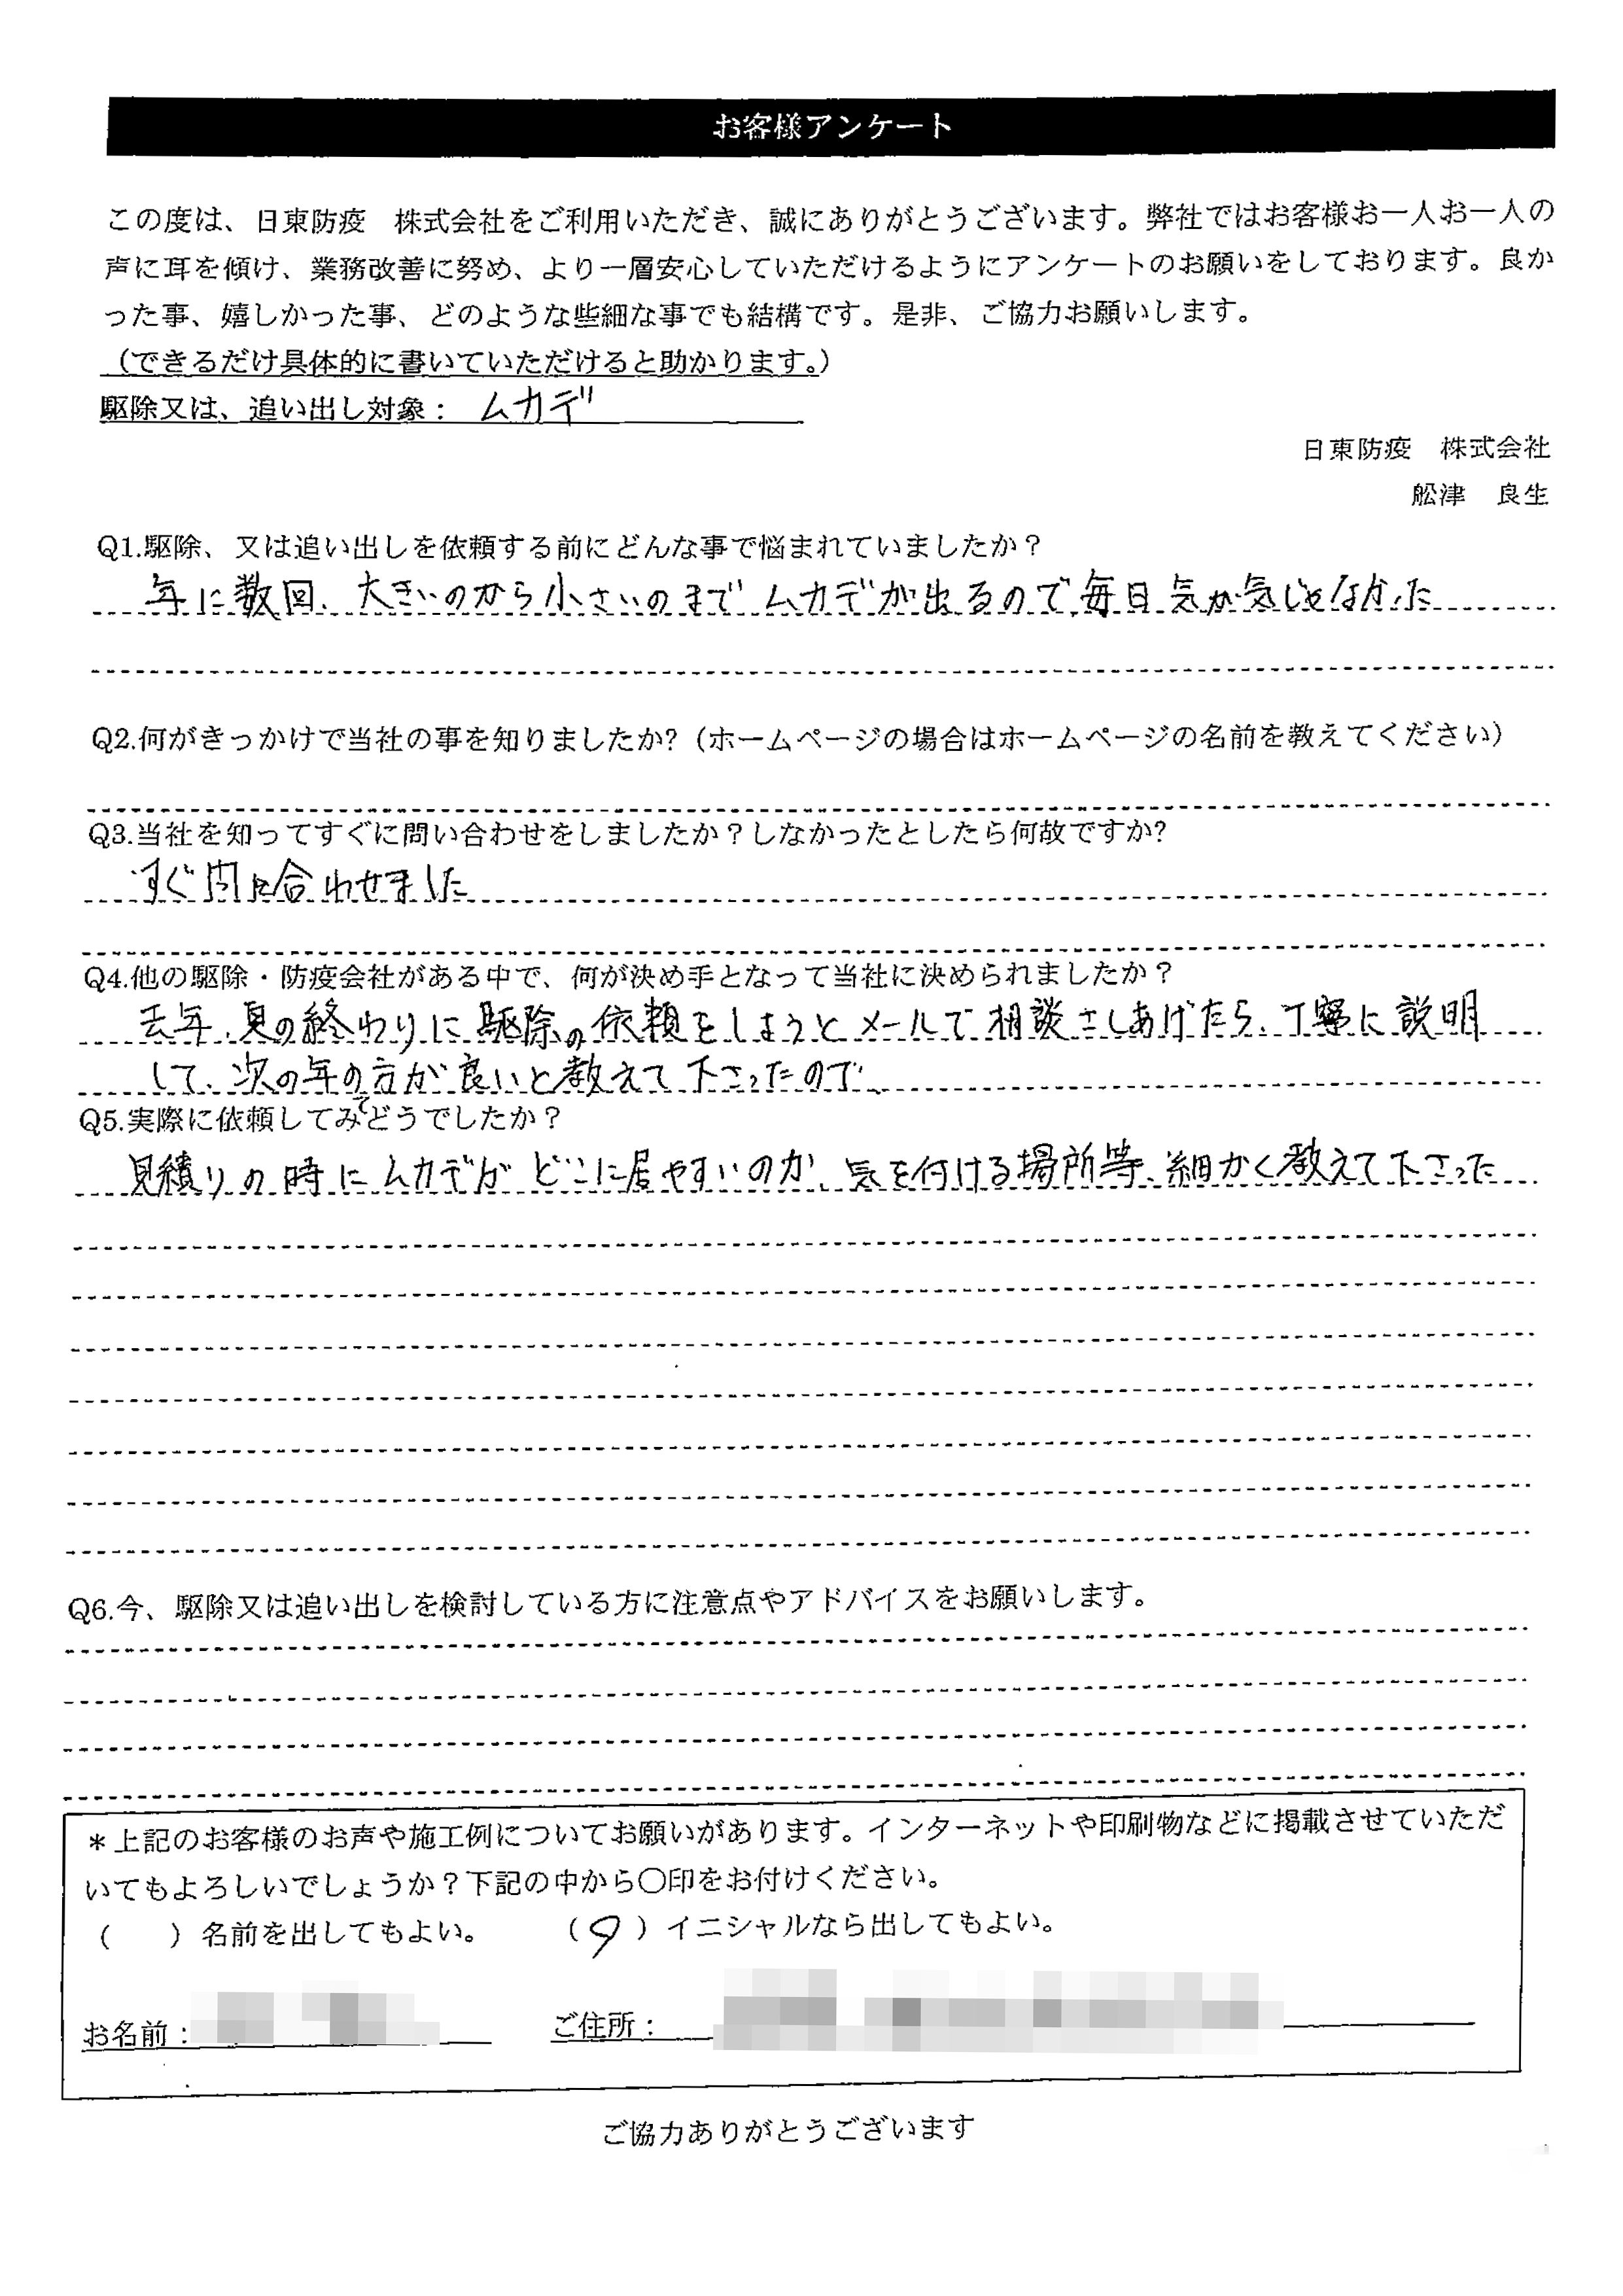 お客様アンケート
この度は、日東防疫　株式会社をご利用いただき、誠にありがとうございます。弊社ではお客様お一人お一人の
声に耳を傾け、業務改善に努め、より一層安心していただけるようにアンケートのお願いをしております。良か
った事、嬉しかった事、どのような些細な事でも結構です。是非、ご協力お願いします。
（できるだけ具体的に書いていただけると助かります。）
駆除又は、追い出し対象： ムカデ
日東防疫　株式会社
舩津　良生
Q1.駆除、又は追い出しを依頼する前にどんな事で悩まれていましたか？
年に数回、大きいのから小さいのまでムカデが出るので毎日気が気じゃなかった
Q2.何がきっかけで当社の事を知りましたか?（ホームページの場合はホームページの名前を教えてください）
Q3.当社を知ってすぐに問い合わせをしましたか？しなかったとしたら何故ですか?
すぐ問い合わせました
Q4.他の駆除・防疫会社がある中で、何が決め手となって当社に決められましたか？
去年、夏の終わりに駆除の依頼をしようとメールで相談さしあげたら、丁寧に説明
して、次の年の方が良いと教えて下さったので
Q5.実際に依頼してみてどうでしたか？
見積りの時にムカデがどこに居やすいのか、気を付ける場所等、細かく教えて下さった
Q6.今、駆除又は追い出しを検討している方に注意点やアドバイスをお願いします。
＊上記のお客様のお声や施工例についてお願いがあります。インターネットや印刷物などに掲載させていただ
いてもよろしいでしょうか？下記の中から〇印をお付けください。
（　　）名前を出してもよい。　　（〇）イニシャルなら出してもよい。
お名前：　　ご住所：
ご協力ありがとうございます